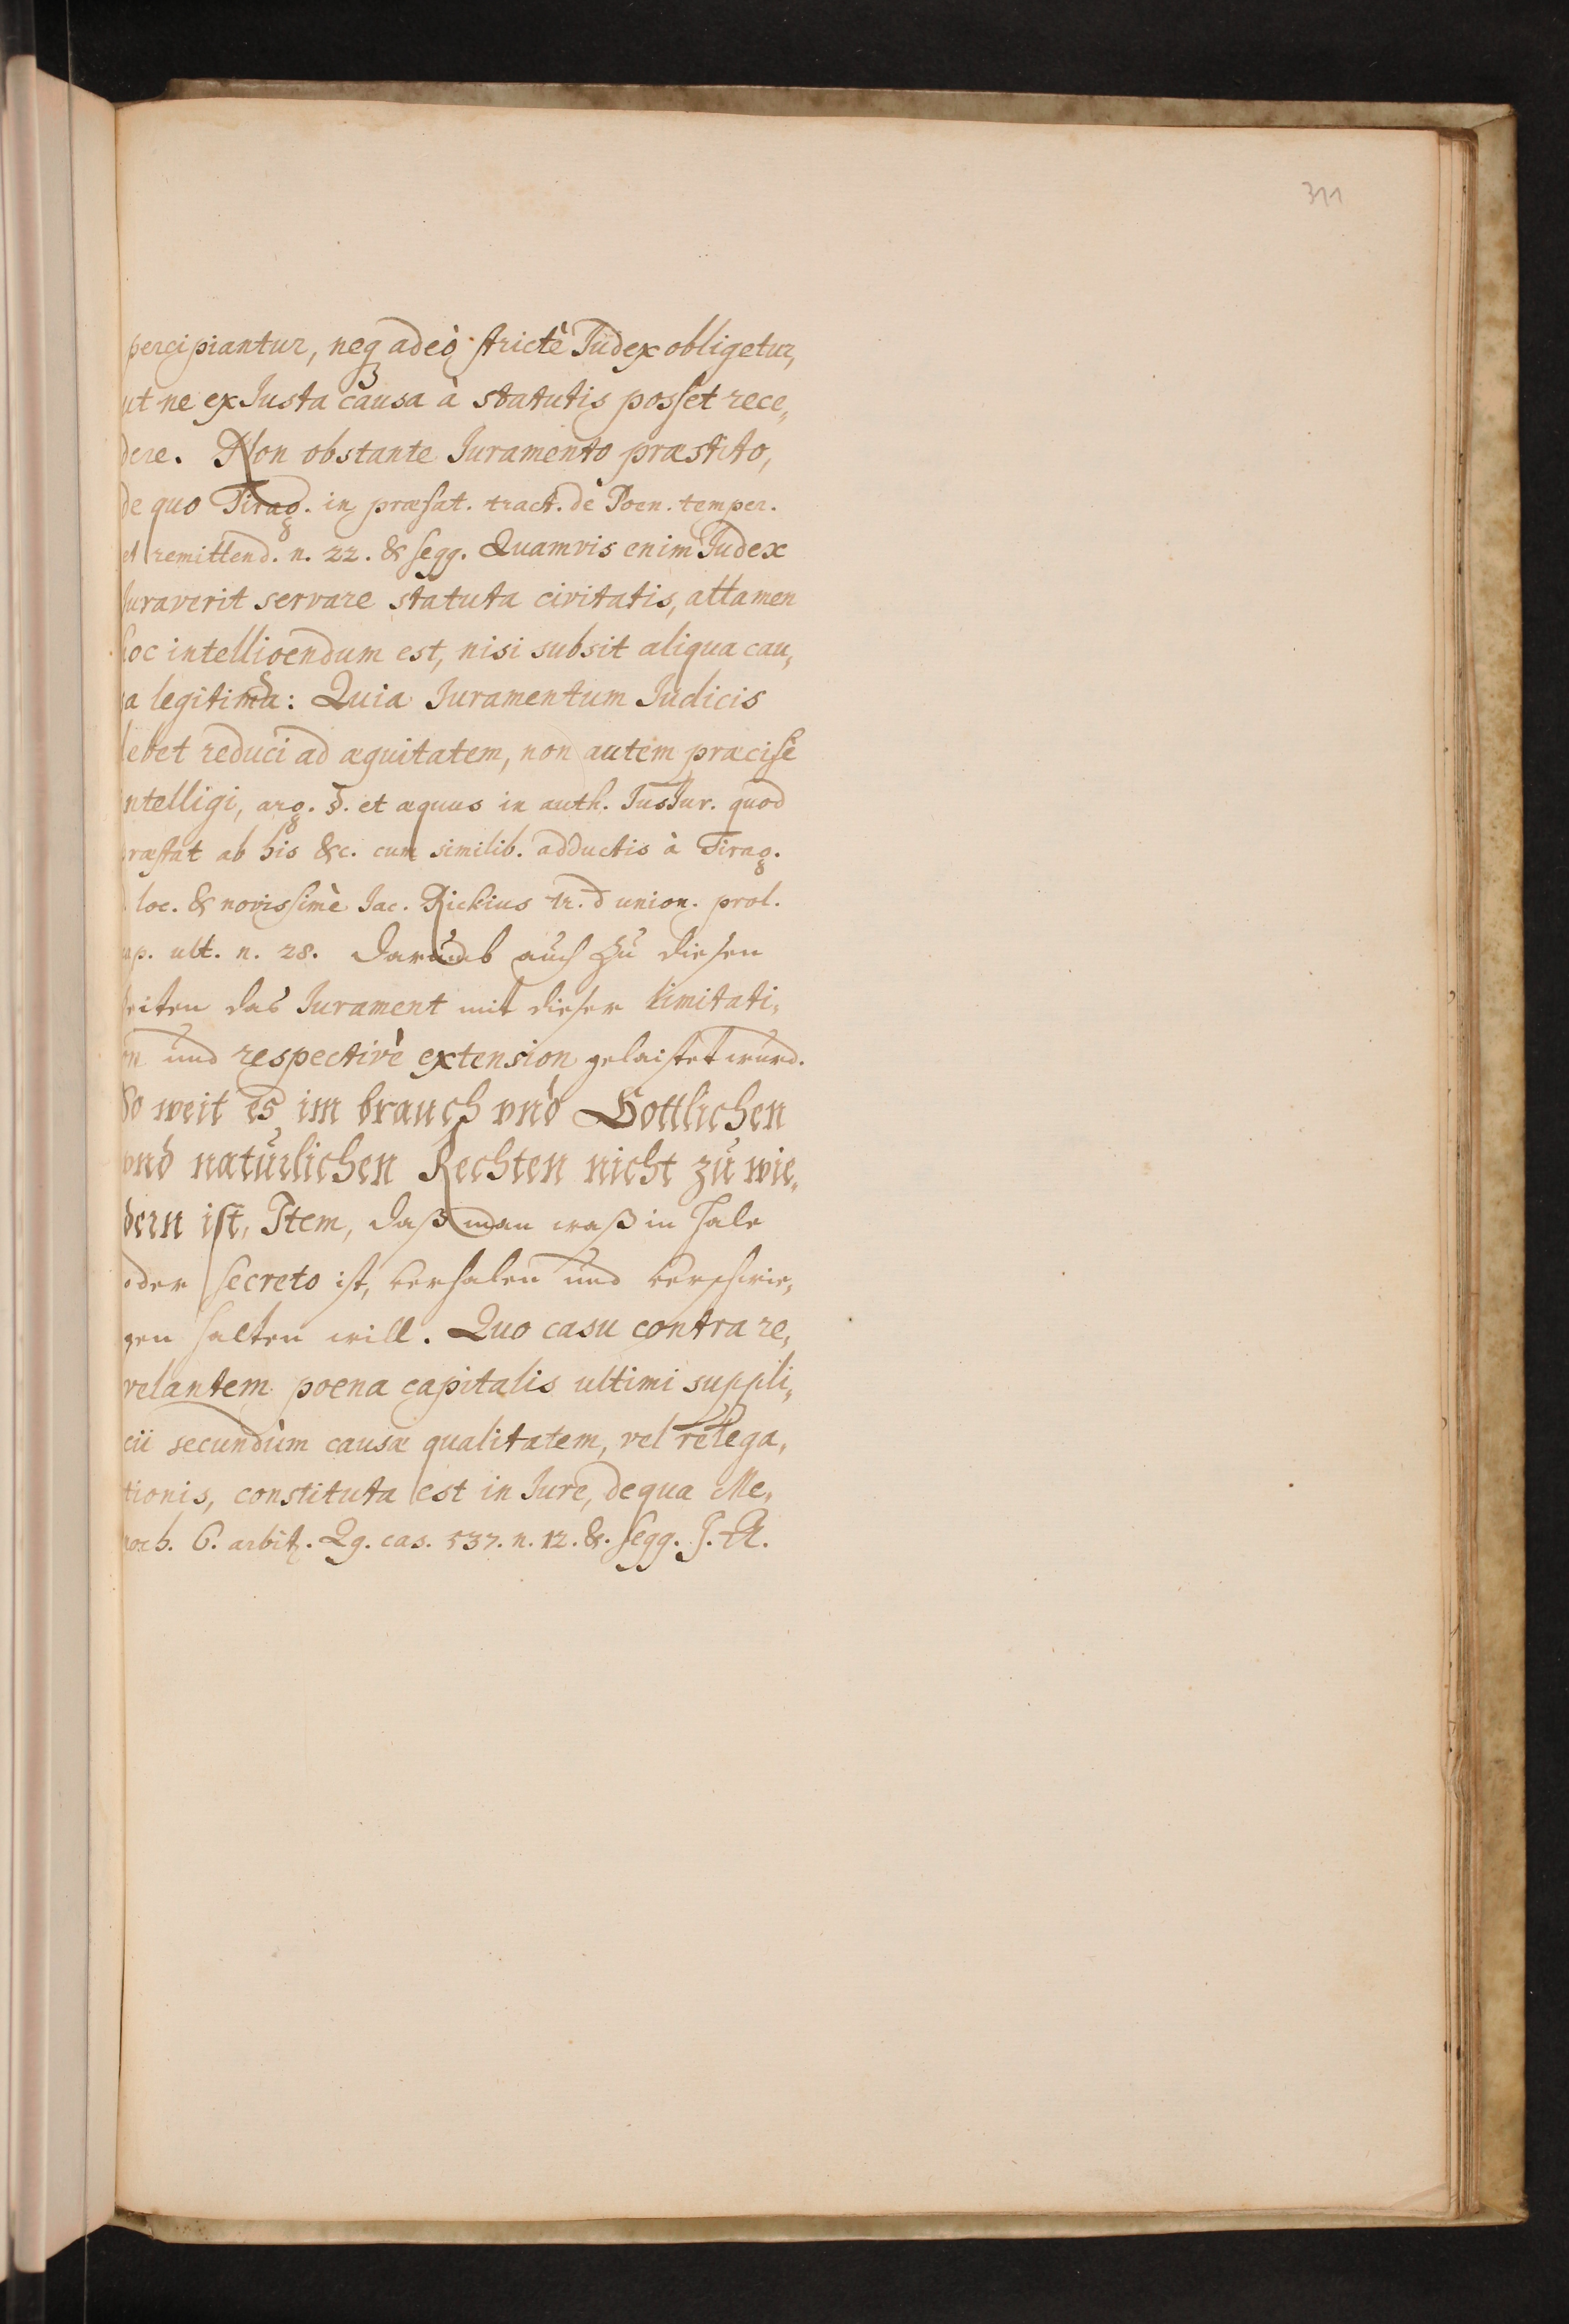 311
percipiantur, neq adeò strictè Judex obligetur,
ut ne ex Justa causa à statutis posset rece„
dere. Non obstante Juramento præstito,
de quo Tiraq. in præfat. tract. de Poen. temper.
et remittend. n. 22. & seqq. Quamvis enim Judex
Juraverit servare statuta civitatis, attamen
hoc intelligendum est, nisi subsit aliqua cau„
sa legitima: Quia Juramentum Judicis
debet reduci ad æquitatem, non autem præcisè
intelligi, arg. §. et æquus in auth. JusJur. quod
præstat ab his &c. cum similib. adductis à Tiraq.
loc. & novissimè Jac. Rickius tr. d union. prol.
cap. ult. n. 28. Darumb auch zu diesen
Zeiten das Jurament mit dieser limitati„
on und respectivè extension gelaistet wurd.
So weit es im brauch vnd Gottlichen
vnd natürlichen Rechten nicht zu wie„
dern ist, Item, daß man waß in hale
oder secreto ist, verhalen und verschwie„
gen halten will. Quo casu contra re„
velantem poena capitalis ultimi suppli„
cii secundùm causæ qualitatem, vel relega„
tionis, constituta est in Jure, de qua Me„
noch. 6. arbitr. Qq. cas. 537. n. 12. &. seqq. J. A.